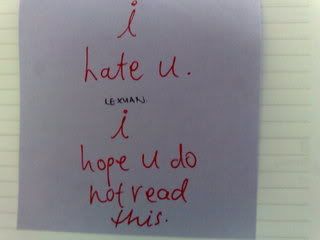 i
hate u.
LE XUAN.
i
hope u do
not read
this.